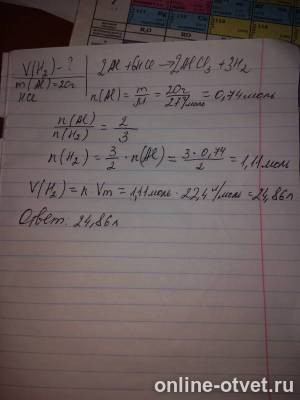 V(H₂)-? | 2Al+6HCl→2AlCl₃+3H₂
m(Al)=20г | n(Al)=m/M=20г/27г/моль=0,74моль
HCl
n(Al)/n(H₂)=2/3
n(H₂)=3/2·n(Al)=3·0,74/2=1,11моль
V(H₂)=n Vm=1,11моль·22,4л/моль=24,86л
Ответ: 24,86л
online-otvet.ru